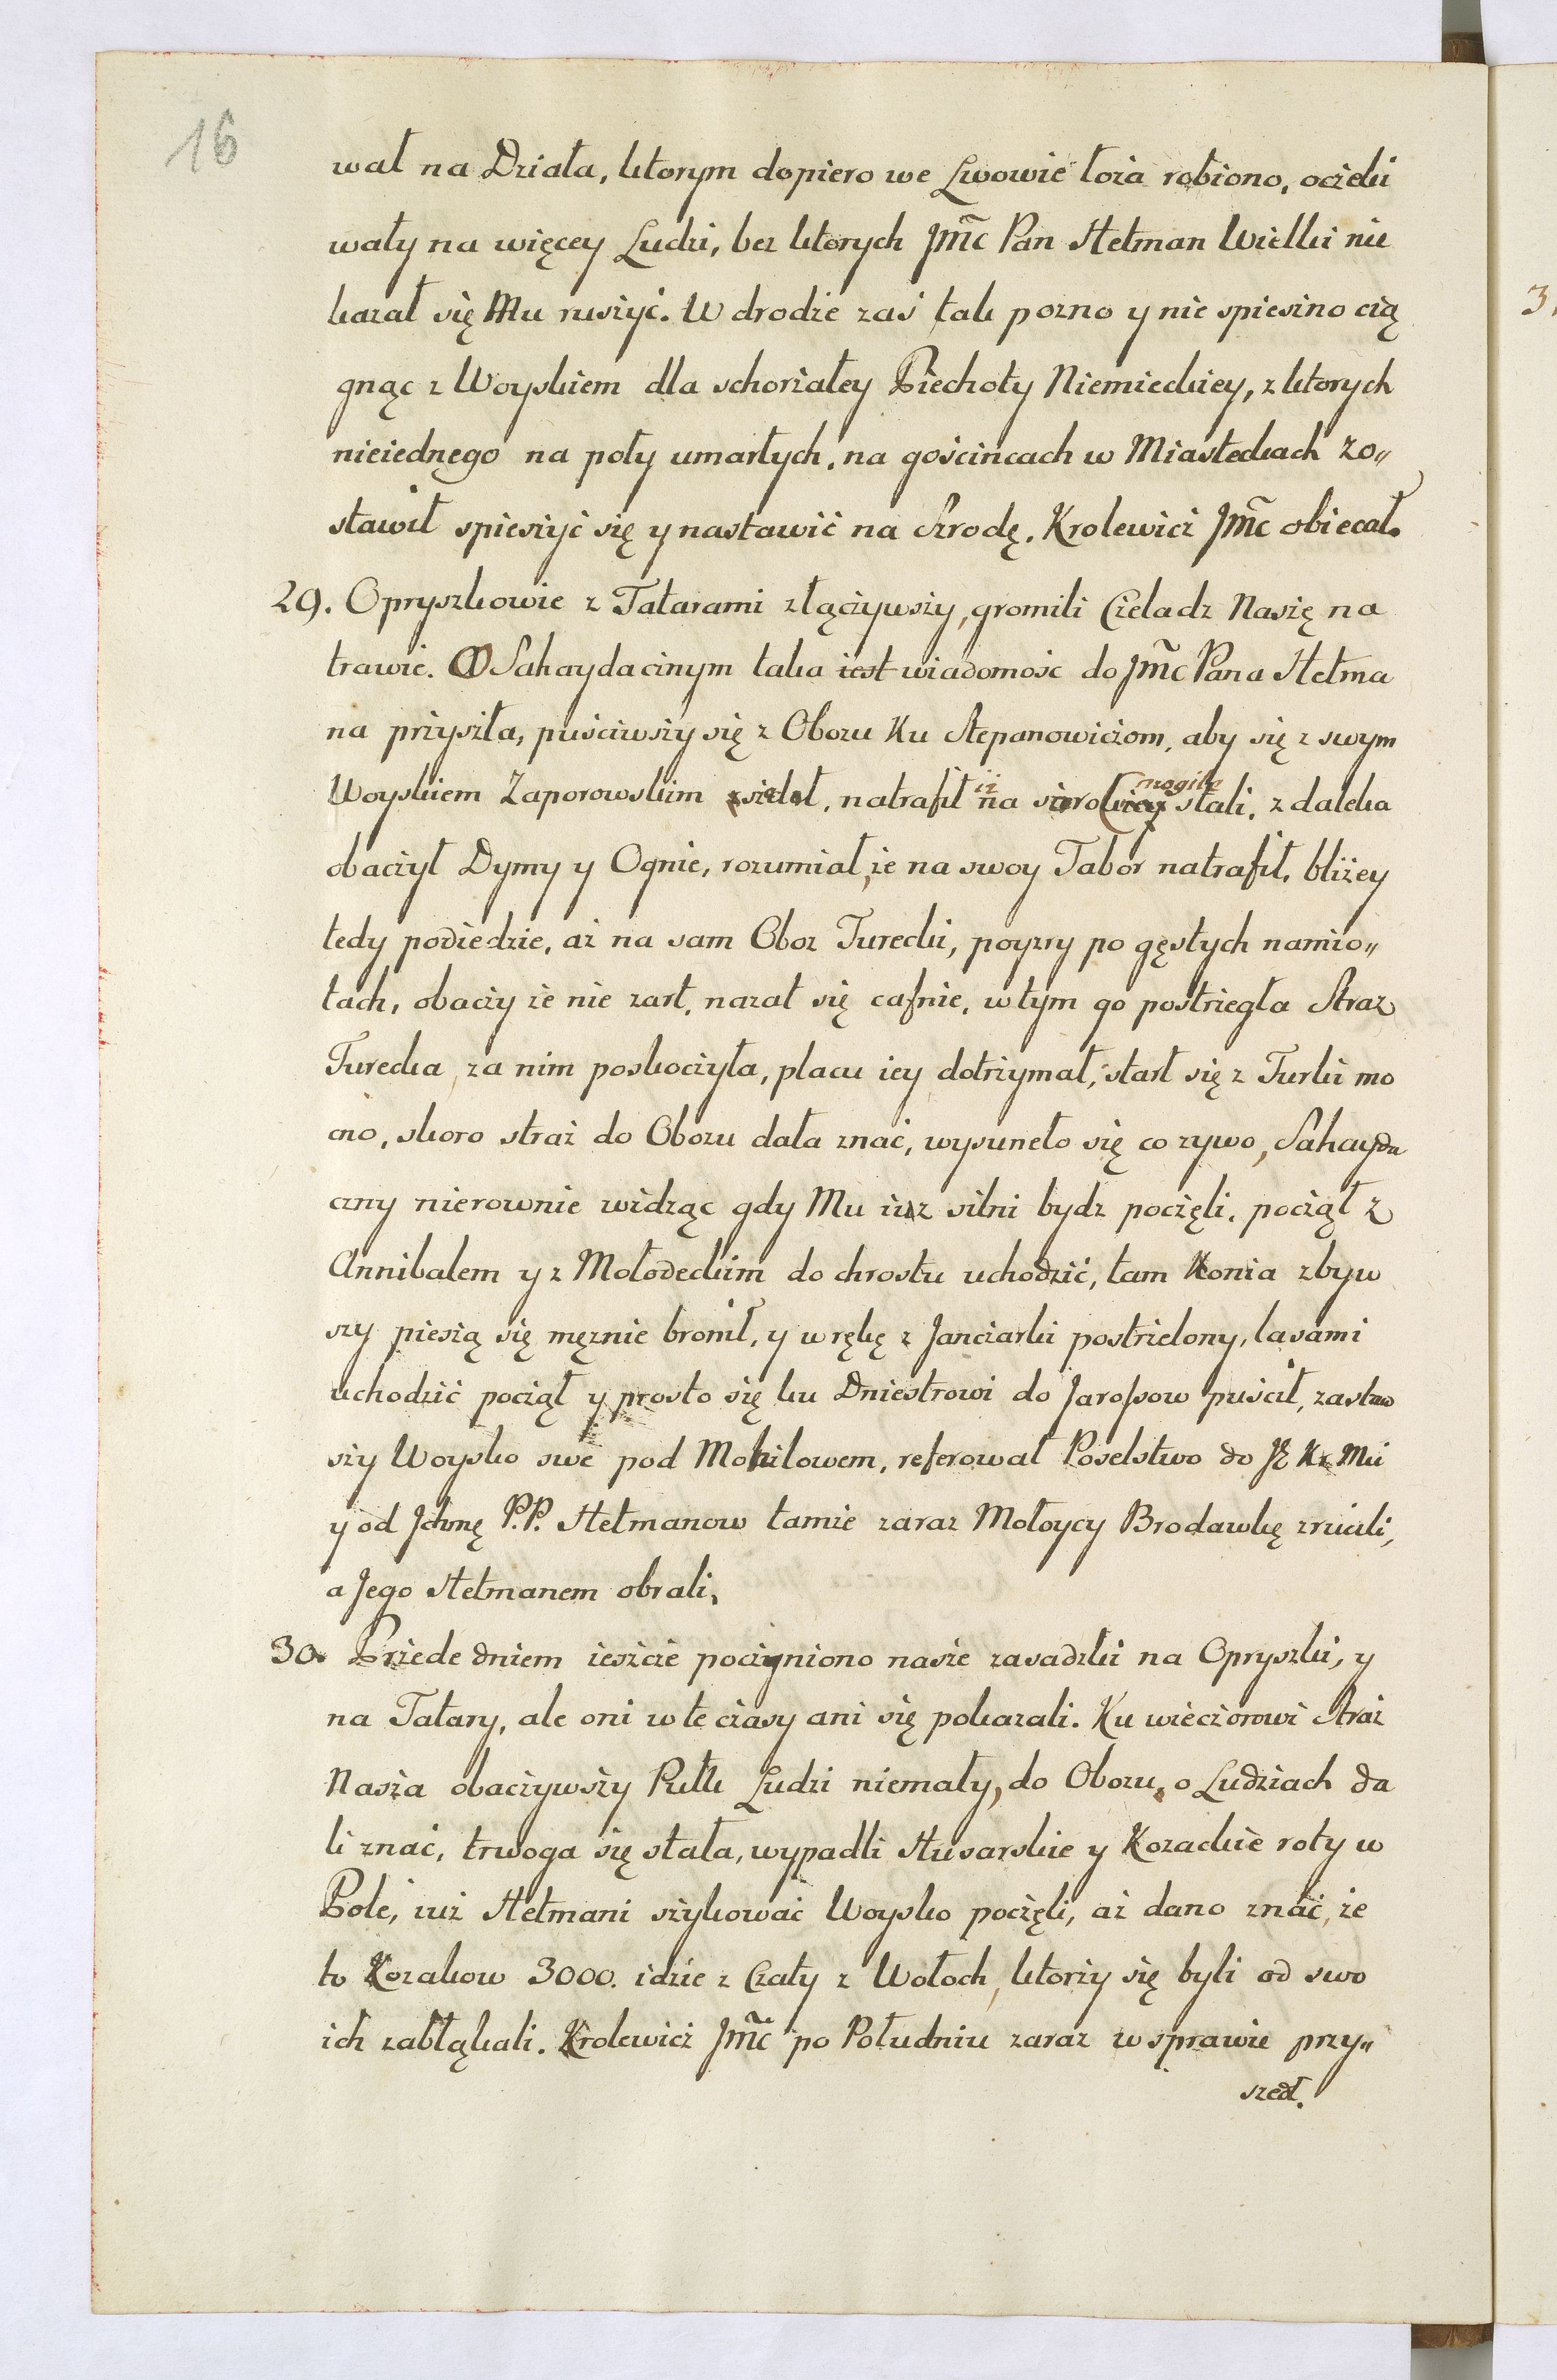 16
wał na Działa, ktorym dopiero we Lwowie łoża robiono, oczeki
wały na więcey Ludzi, bez ktorych Jm̃c Pan Hetman Wielki nie
kazał się Mu ruszyć. W drodze zaś tak pozno y nie spieszno cią
gnąc z Woyskiem dla schorzałey Piechoty Niemieckiey, z ktorych
nieiednego na poły umarłych, na gościncach w Miasteckach zo„
stawił spieszyć się y nastawić na Szrodę. Krolewicz Jm̃c obiecał.
29. Opryszkowie z Tatarami złączywszy, gromili Czeladz Naszę na
trawie. O Sahaydacznym taka iest wiadomośc do Jm̃c Pana Hetma
na przyszła, puściwszy się z Obozu Ku Stepanowiczom, aby się z swym
Woyskiem Zaporowskim ziedał, natrafił na mogile stali, z daleka
obaczył Dymy y Ognie, rozumiał, że na swoy Tabor natrafił, bliżey
tedy podiedzie, aż na sam Oboz Turecki, poyzry po gęstych namio„
tach, obaczy że nie zart, nazat się cafnie, w tym go postrzegła Straz
Turecka, za nim poskoczyła, placu iey dotrzymał, starł się z Turki mo
cno, skoro straż do Obozu dała znać, wysuneło się co zywo, Sahayda
czny nierownie widząc gdy Mu iuz silni bydz poczęli, począł z
Annibalem y z Mołodeckim do chrostu uchodzić, tam Konia zbyw
szy pieszą się męznie bronił, y w rękę z Janczarki postrzelony, lasami
uchodzić począł y prosto się ku Dniestrowi do Jarossow puścił, zastaw
szy Woysko swe pod Mohilowem, referował Poselstwo do JK Kr Mci
y od Ichmę P.P. Hetmanow tamże zaraz Mołoycy Brodawkę zrzucili,
a Jego Hetmanem obrali.
30. Przede dniem ieszcze pociągniono nasze zasadzki na Opryszki, y
na Tatary, ale oni w te czasy ani się pokazali. Ku wieczorowi Straż
Nasza obaczywszy Pułk Ludzi niemały, do Obozu, o Ludziach da
li znać, trwoga się stała, wypadli Husarskie y Kozackie roty w
Pole, iuż Hetmani szykować Woysko poczęli, aż dano znać, że
to Kozakow 3000. idzie z Czaty z Wołoch, ktorzy się byli od swo
ich zabłąkali. Krolewicz Jm̃c po Południu zaraz w sprawie przy„
szedł.